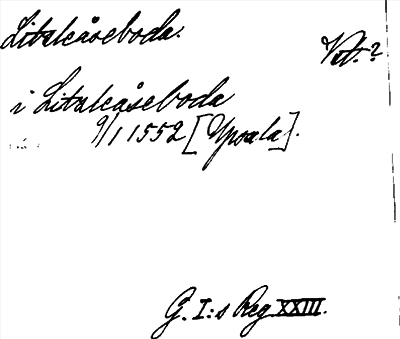 Litslåseboda.
Vst. ?
i Litslåseboda
9/1 1552 [Upsala].
G. I:s Reg XXIII.